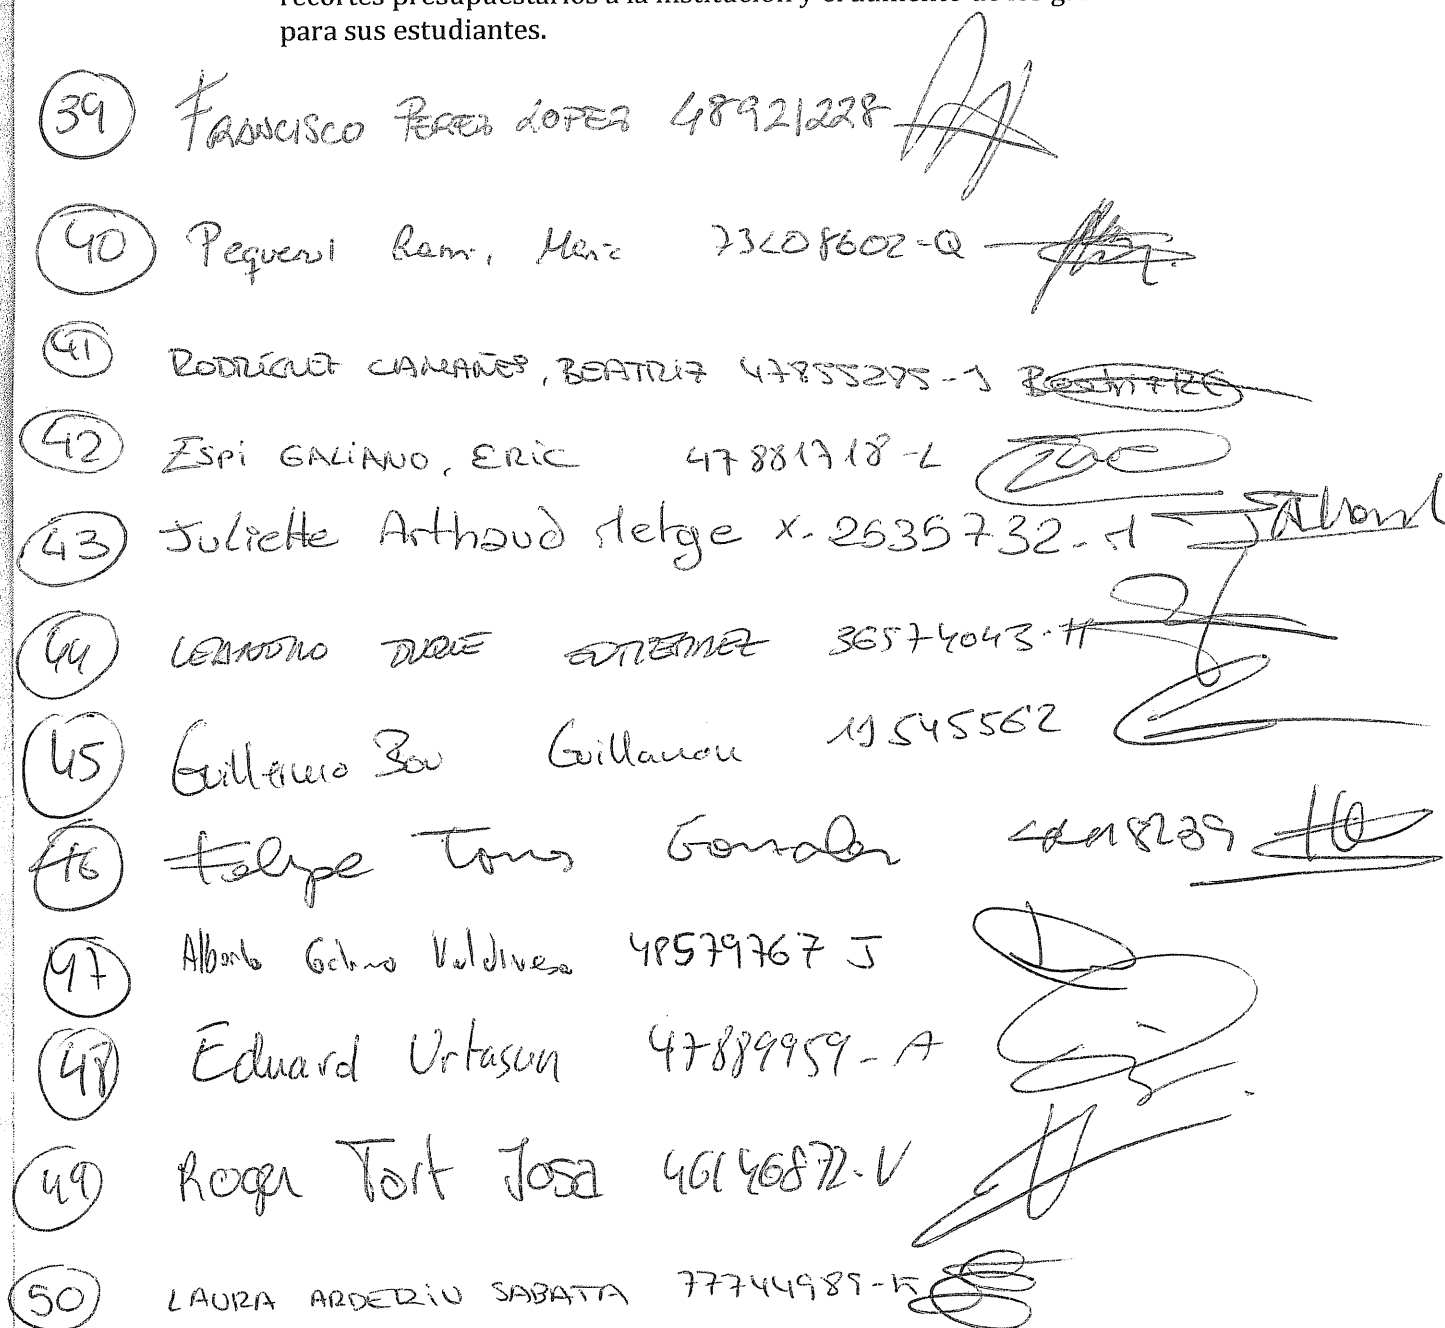 para sus estudiantes.
39 FRANCISCO PEREZ LOPEZ 48921228
40 Pequerul
41 RODRÍGUEZ CAMAÑES, BEATRIZ 47855295-J
42 ESPI GALIANO, ERIC 47881718-L
43 Juliette Arthaud Metge X-2635732-M
44 LEANDRO DUQUE GUTIERREZ 36574043-H
45 Guillermo Bou Guillamon 19545562
46 Felipe Torres Gonzalez
47 Alberto Valdivieso 48579767 J
48 Eduard Urtasun 47889959-A
49 Roger Tort Josa 46146872-V
50 LAURA ARDERIU SABATA 77744989-K